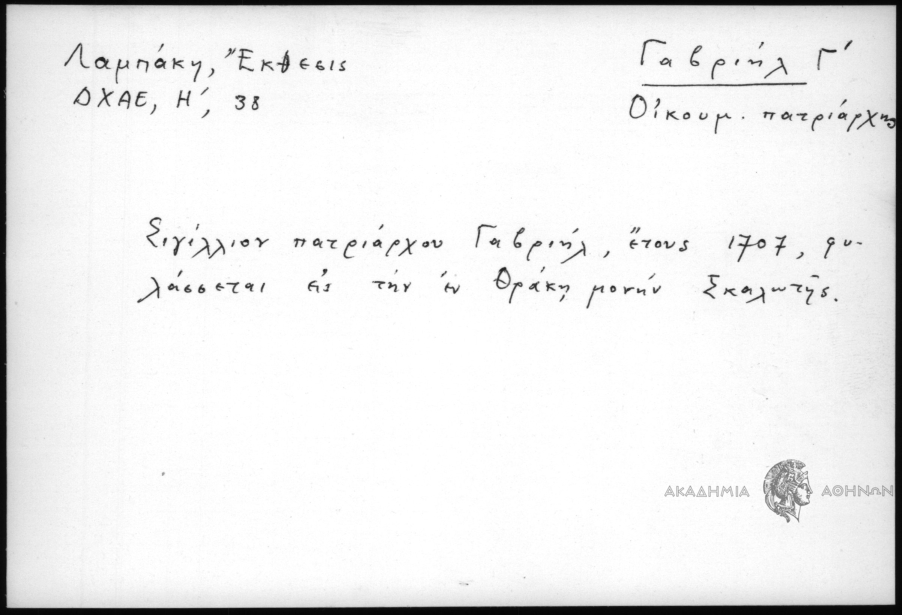 Λαμπάκη, Ἔκθεσις
ΔΧΑΕ, Η΄, 38
Γαβριήλ Γ΄
Οἰκουμ. πατριάρχης
Σιγίλλιον πατριάρχου Γαβριήλ, ἔτους 1707, φυ-
λάσσεται εἰς τήν ἐν Θράκῃ μονήν Σκαλωτῆς.
ΑΚΑΔΗΜΙΑ ΑΘΗΝΩΝ